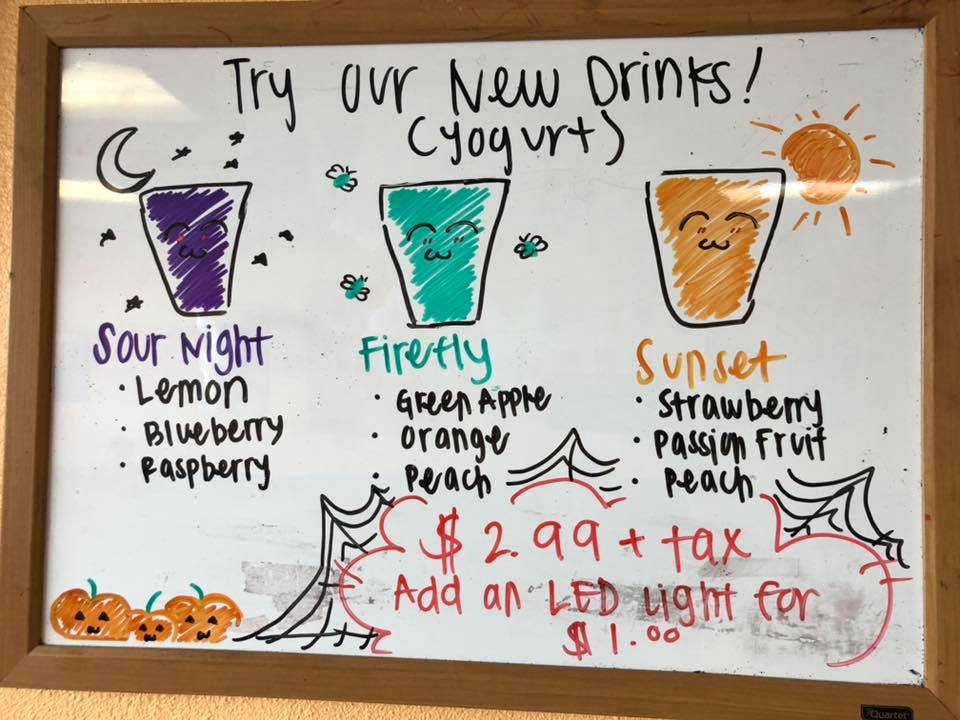 Try our New Drinks!
(Yogurt)
Sour Night
• Lemon
• Blueberry
• Raspberry
Firefly
• Green Apple
• Orange
• Peach
Sunset
• Strawberry
• Passion Fruit
• Peach
$2.99 + tax
Add an LED Light for
$1.00
Quartet